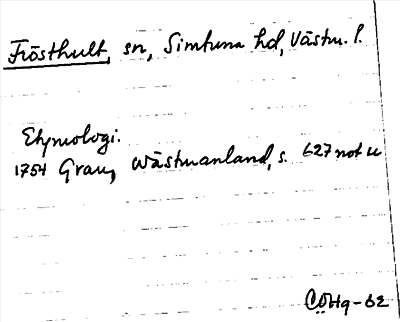 Frösthult, sn, Simtuna hd, Västm. l.
Etymologi.
1754 Grau, Wästmanland, s. 627 not u
CÖHg-62